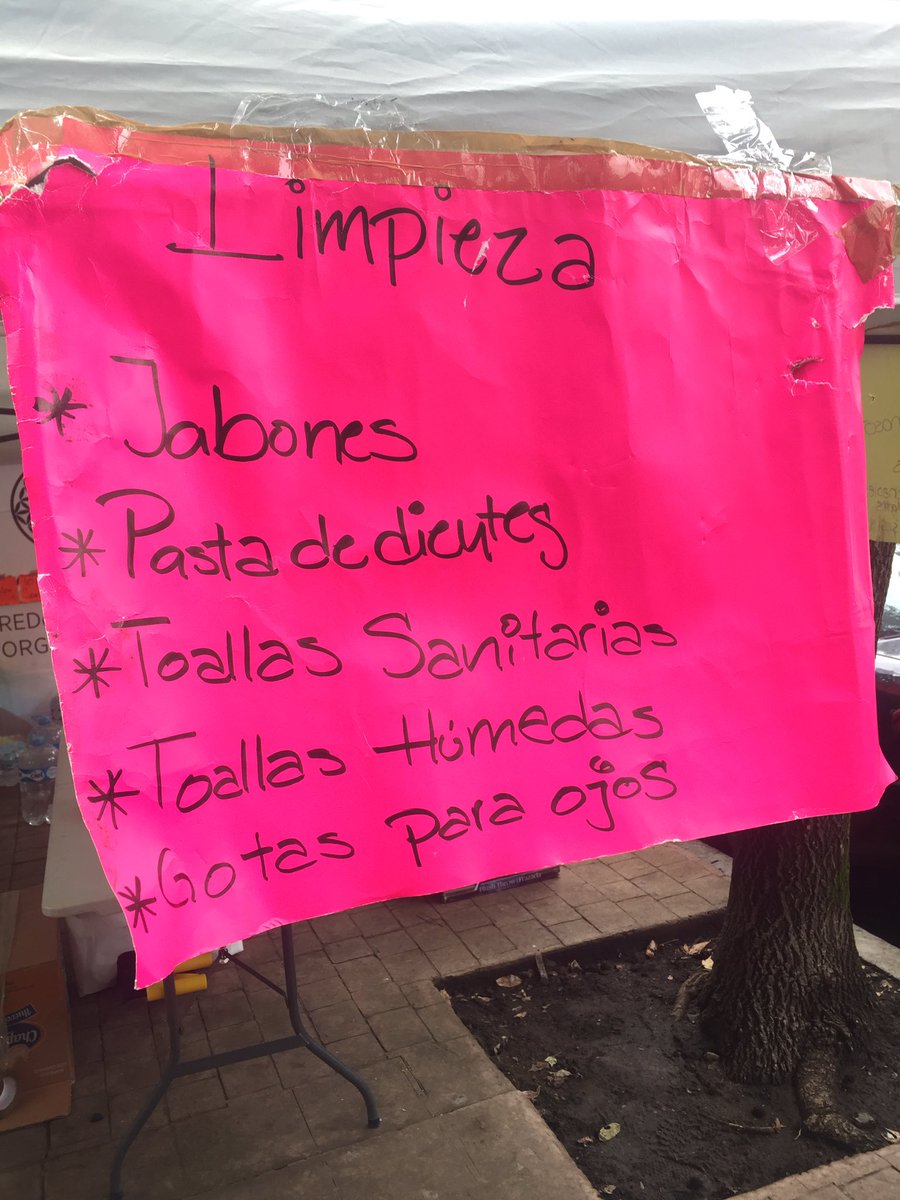 Limpieza
* Jabones
* Pasta de dientes
* Toallas Sanitarias
* Toallas Húmedas
* Gotas para ojos
RED
ORG